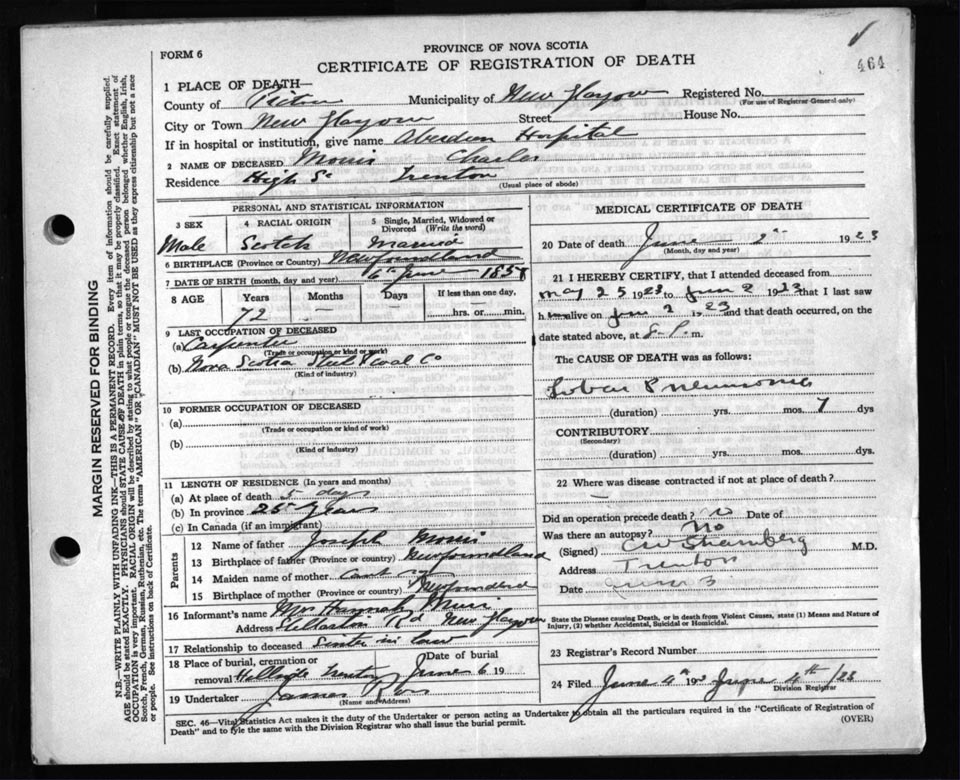 PROVINCE OF NOVA SCOTIA
FORM 6
CERTIFICATE OF REGISTRATION OF DEATH
464
1 PLACE OF DEATH—
County of Pictou Municipality of New Glasgow Registered No.
(For use of Registrar General only)
City or Town New Glasgow Street House No.
If in hospital or institution, give name Aberdeen Hospital
2 NAME OF DECEASED Morris Charles
Residence High St Trenton
(Usual place of abode)
PERSONAL AND STATISTICAL INFORMATION
3 SEX 4 RACIAL ORIGIN 5 Single, Married, Widowed or Divorced (Write the word)
Male Scotch Married
6 BIRTHPLACE (Province or Country) Newfoundland
7 DATE OF BIRTH (month, day and year) 6th June
8 AGE Years Months Days If less than one day,
72 — — hrs. or min.
9 LAST OCCUPATION OF DECEASED
(a) Carpenter
(Trade or occupation or kind of work)
(b) Nova Scotia Steel & Coal Co
(Kind of industry)
10 FORMER OCCUPATION OF DECEASED
(a)
(Trade or occupation or kind of work)
(b)
(Kind of industry)
11 LENGTH OF RESIDENCE (In years and months)
(a) At place of death 5 days
(b) In province 25 Years
(c) In Canada (if an immigrant)
Parents
12 Name of father Joseph Morris
13 Birthplace of father (Province or country) Newfoundland
14 Maiden name of mother
15 Birthplace of mother (Province or country) Newfoundland
16 Informant's name Mrs Hannah
Address Stellarton Rd New Glasgow
17 Relationship to deceased Sister in law
18 Place of burial, cremation or removal Hillside Trenton Date of burial June 6 19
19 Undertaker James
(Name and Address)
MEDICAL CERTIFICATE OF DEATH
20 Date of death June 1923
(Month, day and year)
21 I HEREBY CERTIFY, that I attended deceased from
May 25 1923 to June 2 1923 that I last saw
him alive on June 2 1923 and that death occurred, on
date stated above, at 8-P. m.
The CAUSE OF DEATH was as follows:
Lobar Pneumonia
(duration) yrs. mos. 7 dys
CONTRIBUTORY
(Secondary)
(duration) yrs. mos. dys.
22 Where was disease contracted if not at place of death?
—
Did an operation precede death? No Date of
Was there an autopsy? No
(Signed) M.D.
Address Trenton
Date June 3
State the Disease causing Death, or in death from Violent Causes, state (1) Means and Nature of
Injury, (2) whether Accidental, Suicidal or Homicidal.
23 Registrar's Record Number
24 Filed June 4th 192 June 4th /23
Division Registrar
SEC. 46—Vital Statistics Act makes it the duty of the Undertaker or person acting as Undertaker to obtain all the particulars required in the "Certificate of Registration of
Death" and to file the same with the Division Registrar who shall issue the burial permit.
(OVER)
MARGIN RESERVED FOR BINDING
N.B.—WRITE PLAINLY WITH UNFADING INK—THIS IS A PERMANENT RECORD. Every item of information should be carefully supplied.
AGE should be stated EXACTLY. PHYSICIANS should STATE CAUSE OF DEATH in plain terms, so that it may be properly classified. Exact statement of
OCCUPATION is very important. RACIAL ORIGIN will be described by stating to what people or tongue the deceased person belonged whether English, Irish,
Scotch, French, German, Russian, Ruthenian, etc. The terms "AMERICAN" OR "CANADIAN" MUST NOT BE USED as they express citizenship but not a race
or people. See instructions on back of Certificate.